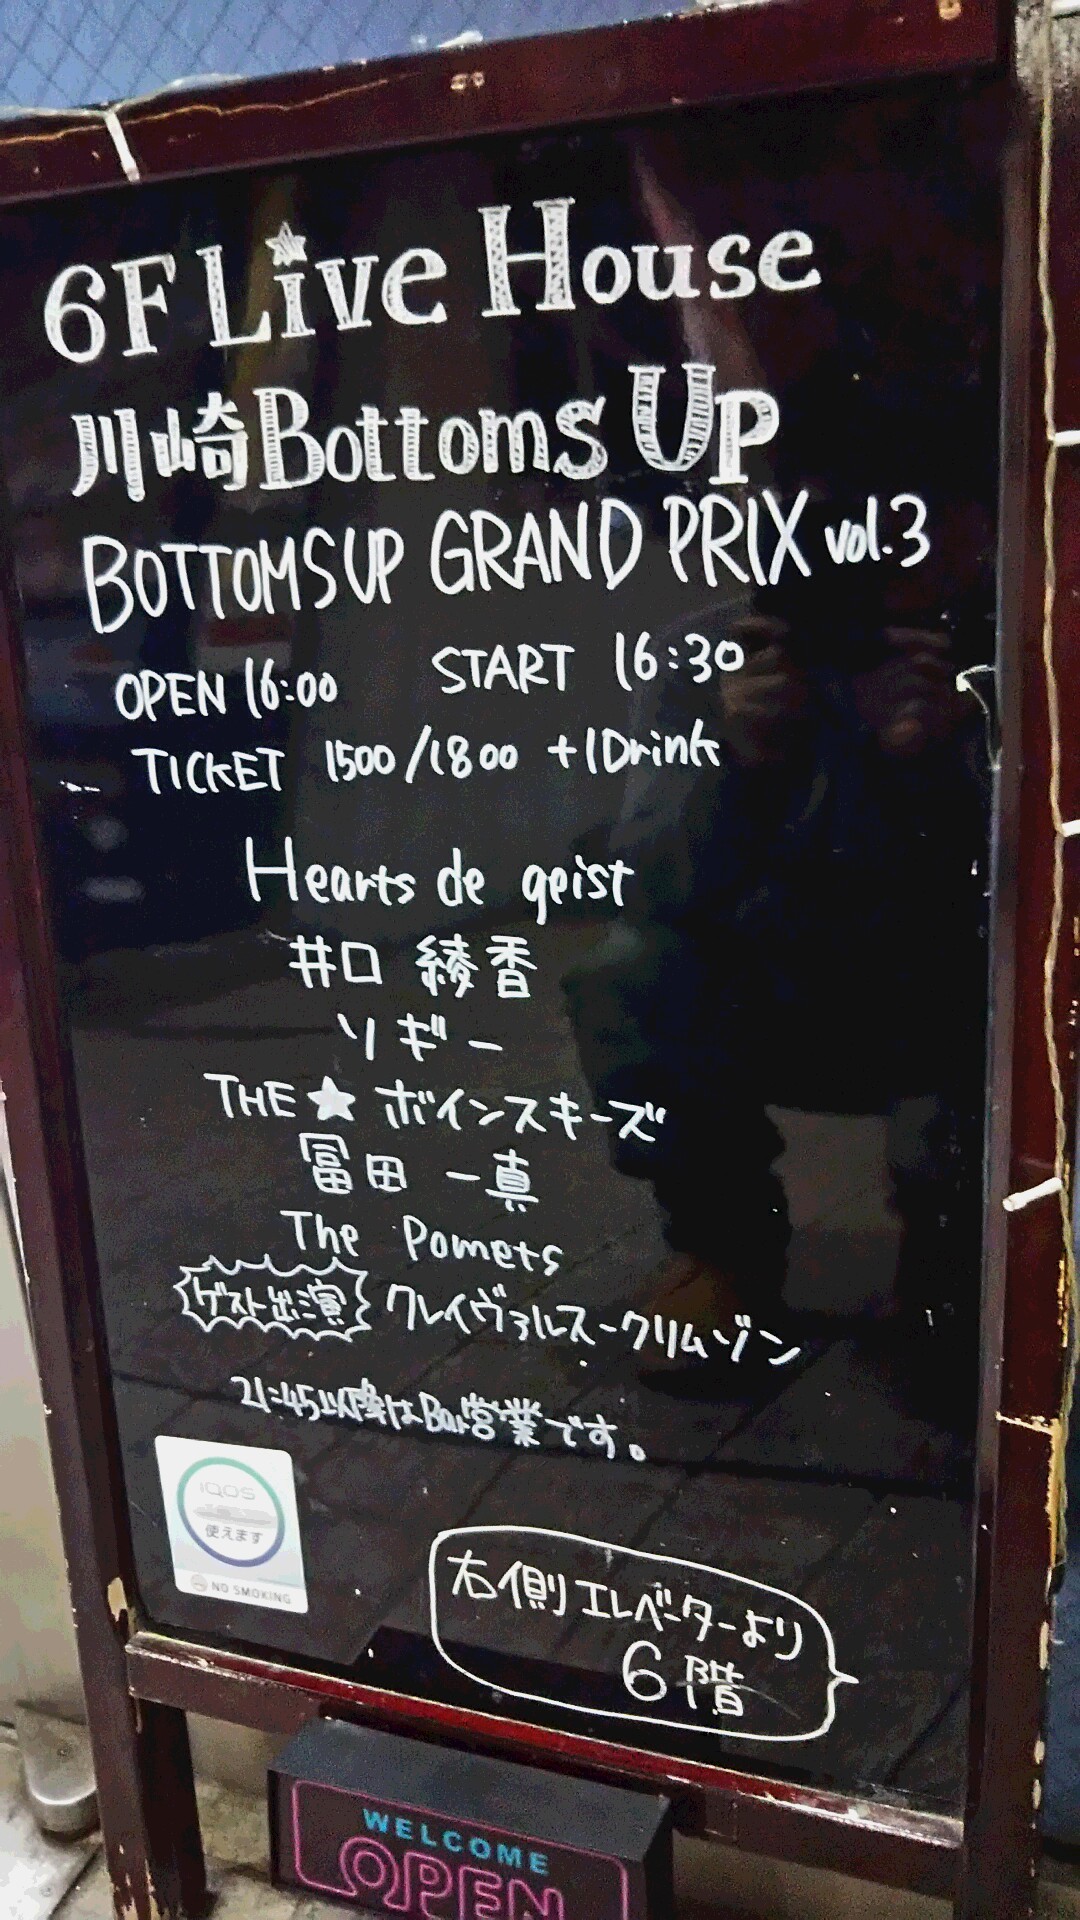 6F Live House
川崎 Bottoms UP
BOTTOMSUP GRAND PRIX vol.3
OPEN 16:00 START 16:30
TICKET 1500/1800 +1Drink
Hearts de geist
井口 綾香
ソギー
THE★ボインスキーズ
冨田 一真
The Pomets
ゲスト出演 クレイヴァルス-クリムゾン
21:45以降はBar営業です。
IQOS
使えます
NO SMOKING
右側エレベーターより
6階
WELCOME
OPEN